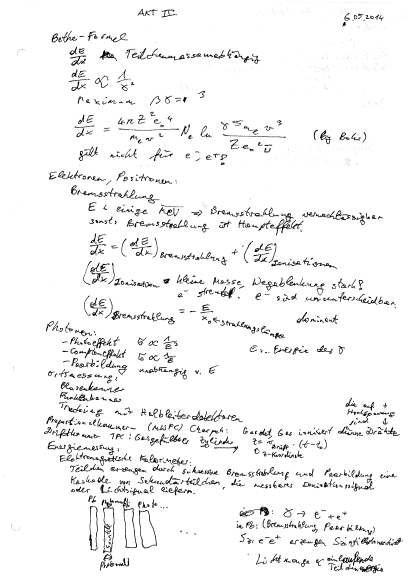 AKT II
6.05.2014
Bethe-Formel
dE/dx Teilchenmassenunabhängig
dE/dx ∝ 1/v²
Maximum βγ = 3
dE/dx = 4πZ²e₀⁴ / mₑv² Nₑ ln γ²mₑv³ / Ze₀²ν̄ (by Bohr)
gilt nicht für e⁻, e⁺!
Elektronen, Positronen:
Bremsstrahlung
E < einige MeV ⇒ Bremsstrahlung vernachlässigbar
sonst: Bremsstrahlung ist Haupteffekt.
dE/dx = (dE/dx)Bremsstrahlung + (dE/dx)Ionisationen
(dE/dx)Ionisation kleine Masse, Wegablenkung stark!
e⁻ e⁻ sind ununterscheidbar
(dE/dx)Bremsstrahlung = - E/x₀ ← Strahlungslänge dominant
Photonen:
- Photoeffekt σ ∝
- Comptoneffekt σ ∝ 1/E
- Paarbildung unabhängig v. E
E.. Energie des γ
Ortsmessung:
Blasenkammer
Funkenkammer
Tracking mit Halbleiterdetektoren
Proportionalkammer (MWPC) Charpak: Gasdet, Gas ionisiert dünne Drähte
die auf + Hochspannung sind
Driftkammer TPC: Gasgefüllter Zylinder z = v Drift · (t-t₀)
z-Koordinate
Energiemessung:
Elektromagnetische Kalorimeter:
Teilchen erzeugen durch sukzessive Bremsstrahlung und Paarbildung eine
Kaskade von Sekundärteilchen, die messbares Ionisationssignal
oder Lichtsignal liefern.
Pb Photomult Pb Photo...
Szintill
Photomult
...
γ → e⁻ + e⁺
in Pb: (Bremsstrahlung, Paarbildung)
Sz: e⁻ e⁺ erzeugen Szintillationslicht
Lichtmenge ∝ einlaufende
Teilchenenergie